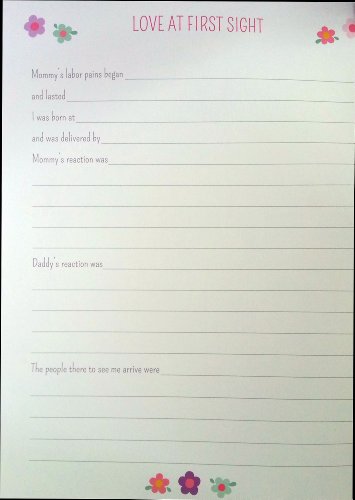 LOVE AT FIRST SIGHT
Mommy's labor pains began
and lasted
I was born at
and was delivered by
Mommy's reaction was
Daddy's reaction was
The people there to see me arrive were